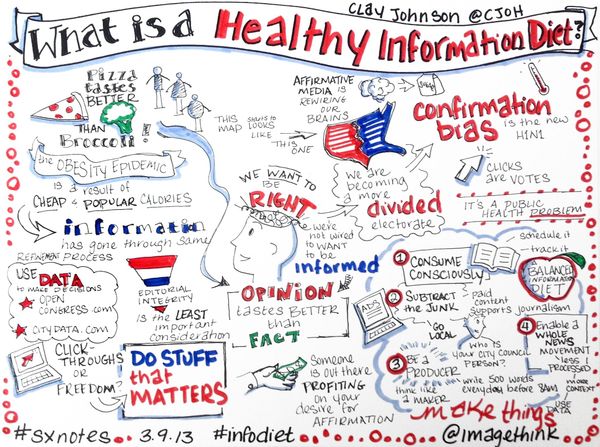 CLAY JOHNSON @CJOH
What is a Healthy Information Diet?
Pizza
tastes
BETTER
THAN
Broccoli!
the OBESITY EPIDEMIC
is a result of
CHEAP & POPULAR CALORIES
information
has gone through same
REFINEMENT PROCESS
USE DATA
to MAKE DECISIONS
OPEN
CONGRESS.COM
CITYDATA.COM
EDITORIAL
INTEGRITY
is the LEAST
important
consideration
CLICK-
THROUGHS
OR
FREEDOM?
DO STUFF
that
MATTERS
THIS
MAP
LOOKS
LIKE
THIS ONE
AFFIRMATIVE
MEDIA is
REWIRING
OUR
BRAINS
WE WANT TO
BE
RIGHT
we're
not wired
to WANT
to be
informed
OPINION
tastes BETTER
than
FACT
someone
is out there
PROFITING
on your
desire for
AFFIRMATION
we are
becoming
a more
divided
electorate
confirmation
bias is the new
H1N1
CLICKS
are VOTES
IT'S A PUBLIC
HEALTH PROBLEM
schedule it
track it
BALANCED
INFORMATION
DIET
1 CONSUME
CONSCIOUSLY
ADS
2 SUBTRACT
the JUNK
Paid
content
supports journalism
GO
LOCAL
who is
your CITY COUNCIL
PERSON?
3 BE A
PRODUCER
think like
a MAKER
write 500 words
everyday before 8AM
4 Enable a
WHOLE
NEWS
MOVEMENT
less
PROCESSED
more
CONTEXT
USE
DATA
make things
#sxnotes 3.9.13 #infodiet @imagethink